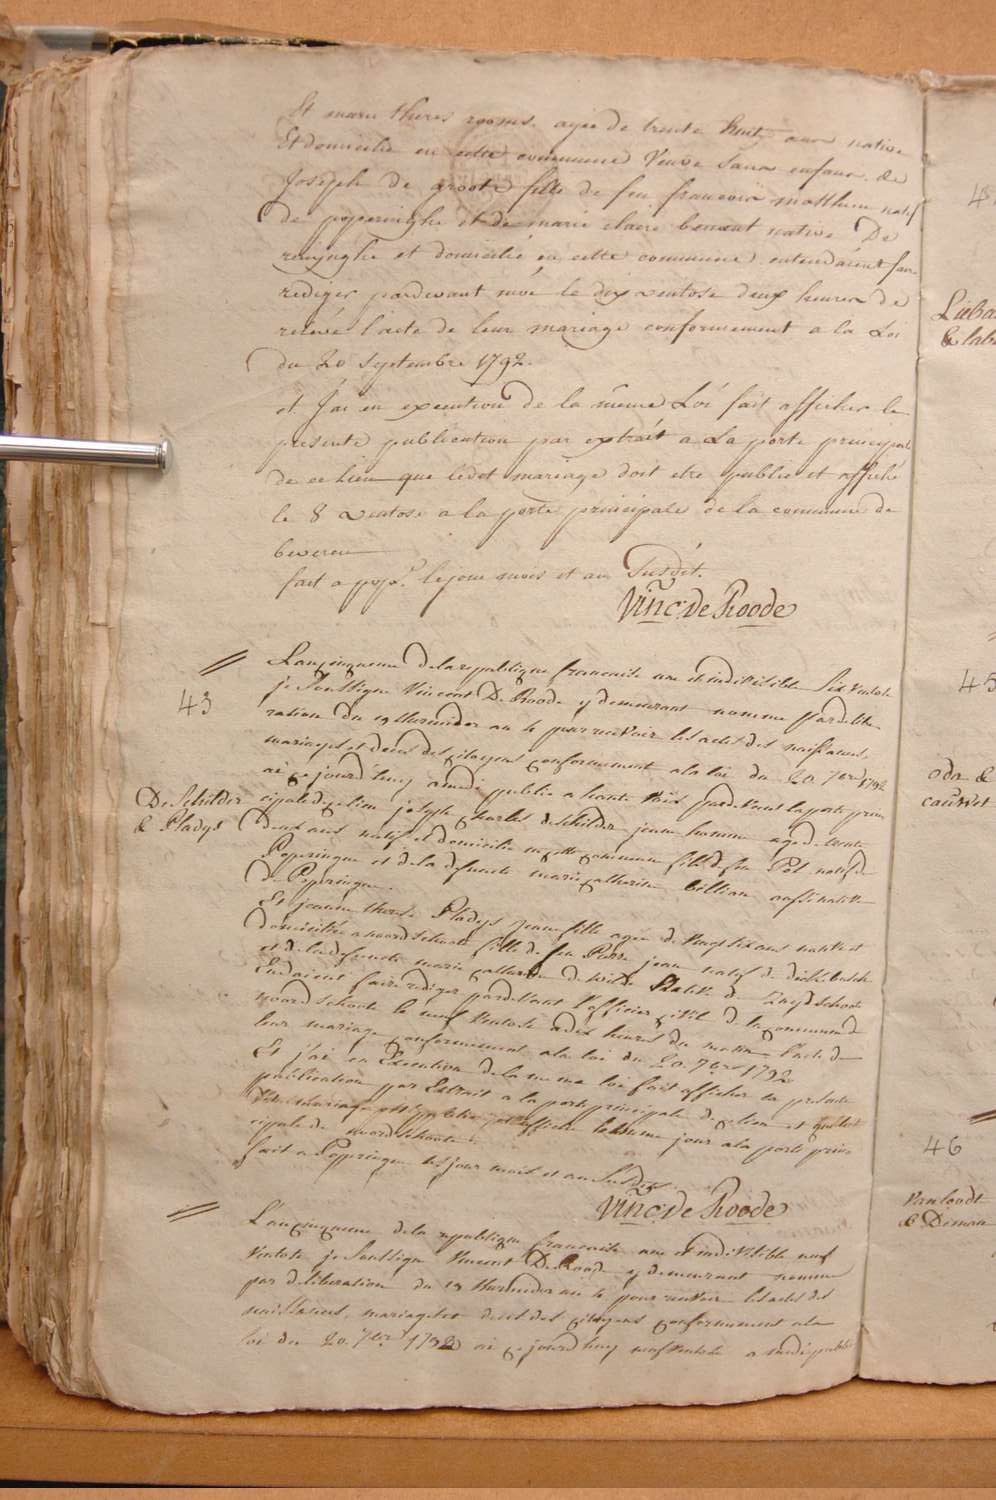 Et marie theres rooms agée de trente huit ans native
Et domicilie en cette commune Veuve sans enfans de
Joseph de groote fille de feu francois mattheu natif
de poperinghe et de marie claire benout native De
reninghe et domicilié en cette commune entendaient faire
rediger pardevant moi le dix ventose deux heures de
relevé l'acte de leur mariage conformement a la Loi
du 20 septembre 1792.
et J'ai en execution de la même Loi fait afficher la
presente publication par extrait a La porte principal
de ce Lieu que ledet mariage doit etre publie et affiché
le 8 ventose a la porte principale de la commune de
beveren
fait a pop.e le jour mois et an Susdit.
Vinc: De Roode
43
De Schilder
& Pladys
L'an cinquieme de la republique francaise une et indivisible Six ventose
je Soussigne Vincent De Roode y demeurant nomme par delibe-
ration du 19 thermidor an 4 pour recevoir les actes des naissances,
mariages et deces des citoyens conformement a la loi du 20. 7bre 1792
ai ce jourd'huy a midi publie a haute voix pardevant la porte prin
cipale de ce lieu joseph charles deschilder jeune homme age de trente
deux ans natif et domicilie en cette commune fils de feu Pol natif de
Poperingue et de la defuncte marie catharine billiau aussi native
de Poperingue.
Et jeanne therese Pladys jeune fille agée de vingt six ans native et
domiciliée a noordschoote fille de feu Pierre jean natif de dickebusch
et de la defuncte marie catharine de wilde native de Zuydschoote
Entdaient faire rediger pardevant l'officier civil de la commune de
noordschoote le neuf ventose a dix heures du matin l'acte de
leur mariage conformement a la loi du 20. 7bre 1792
Et j'ai en Execution de la meme loi fait afficher la presente
publication par Extrait a la porte principale de ce lieu et que led
dit mariage est publie et affiche le meme jour a la porte prin-
cipale de noordschoote.
fait a Poperingue les jour mois et an Susdit
Vinc: De Roode
L'an cinquieme de la republique francaise une et indivisible neuf
Ventose je Soussigne Vincent De Roode y demeurant nomme
par deliberation du 19 thermidor an 4 pour recevoir les actes des
naissances, mariages et deces des citoyens conformement a la
loi du 20. 7bre 1792 ai ce jourd'huy neuf ventose a midi publié
45
odon &
causset
46
Vanloodt
& Deman